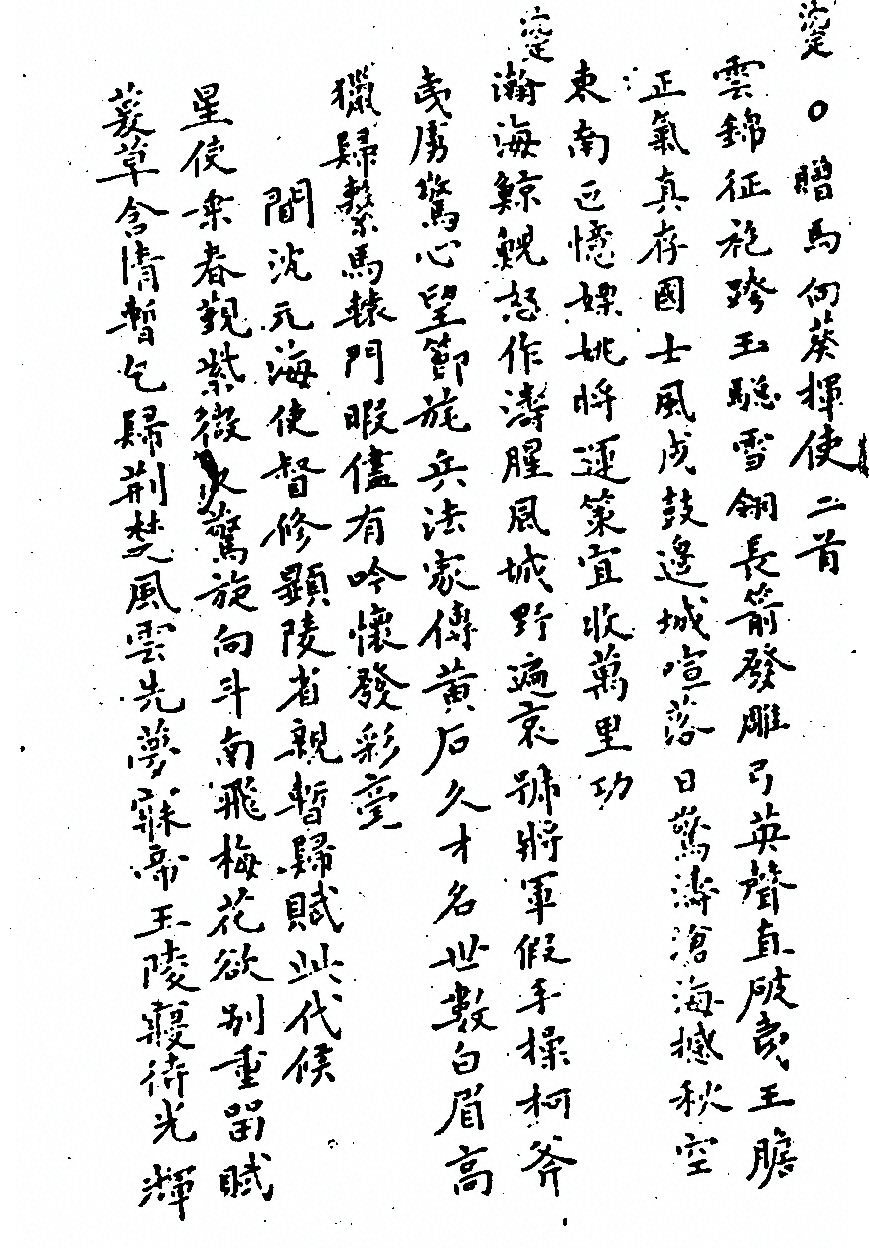 沈定
○贈馬向葵揮使二首
雲錦征袍跨玉驄雪翎長箭發雕弓英聲直破虜王膽
正氣真存國士風戍鼓邊城喧落日驚濤滄海撼秋空
東南正憶嫖姚將運策宜收萬里功
沈定
瀚海鯨鯢怒作濤腥風城野遍哀號將軍假手操柯斧
虜驚心望節旄兵法家傳黃石久才名世數白眉高
獵歸繫馬轅門暇儘有吟懷發彩毫
聞沈元海使督修顯陵省親暫歸賦此代候
星使乘春覲紫微驚旋向斗南飛梅花欲別重留賦
萲草含情暫乞歸荆楚風雲先夢寐帝王陵寢待光輝